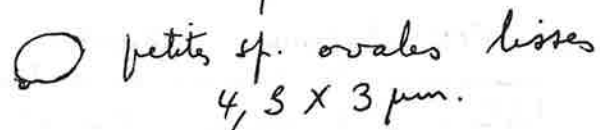 petites sp. ovales lisses
4,5 X 3 µm.